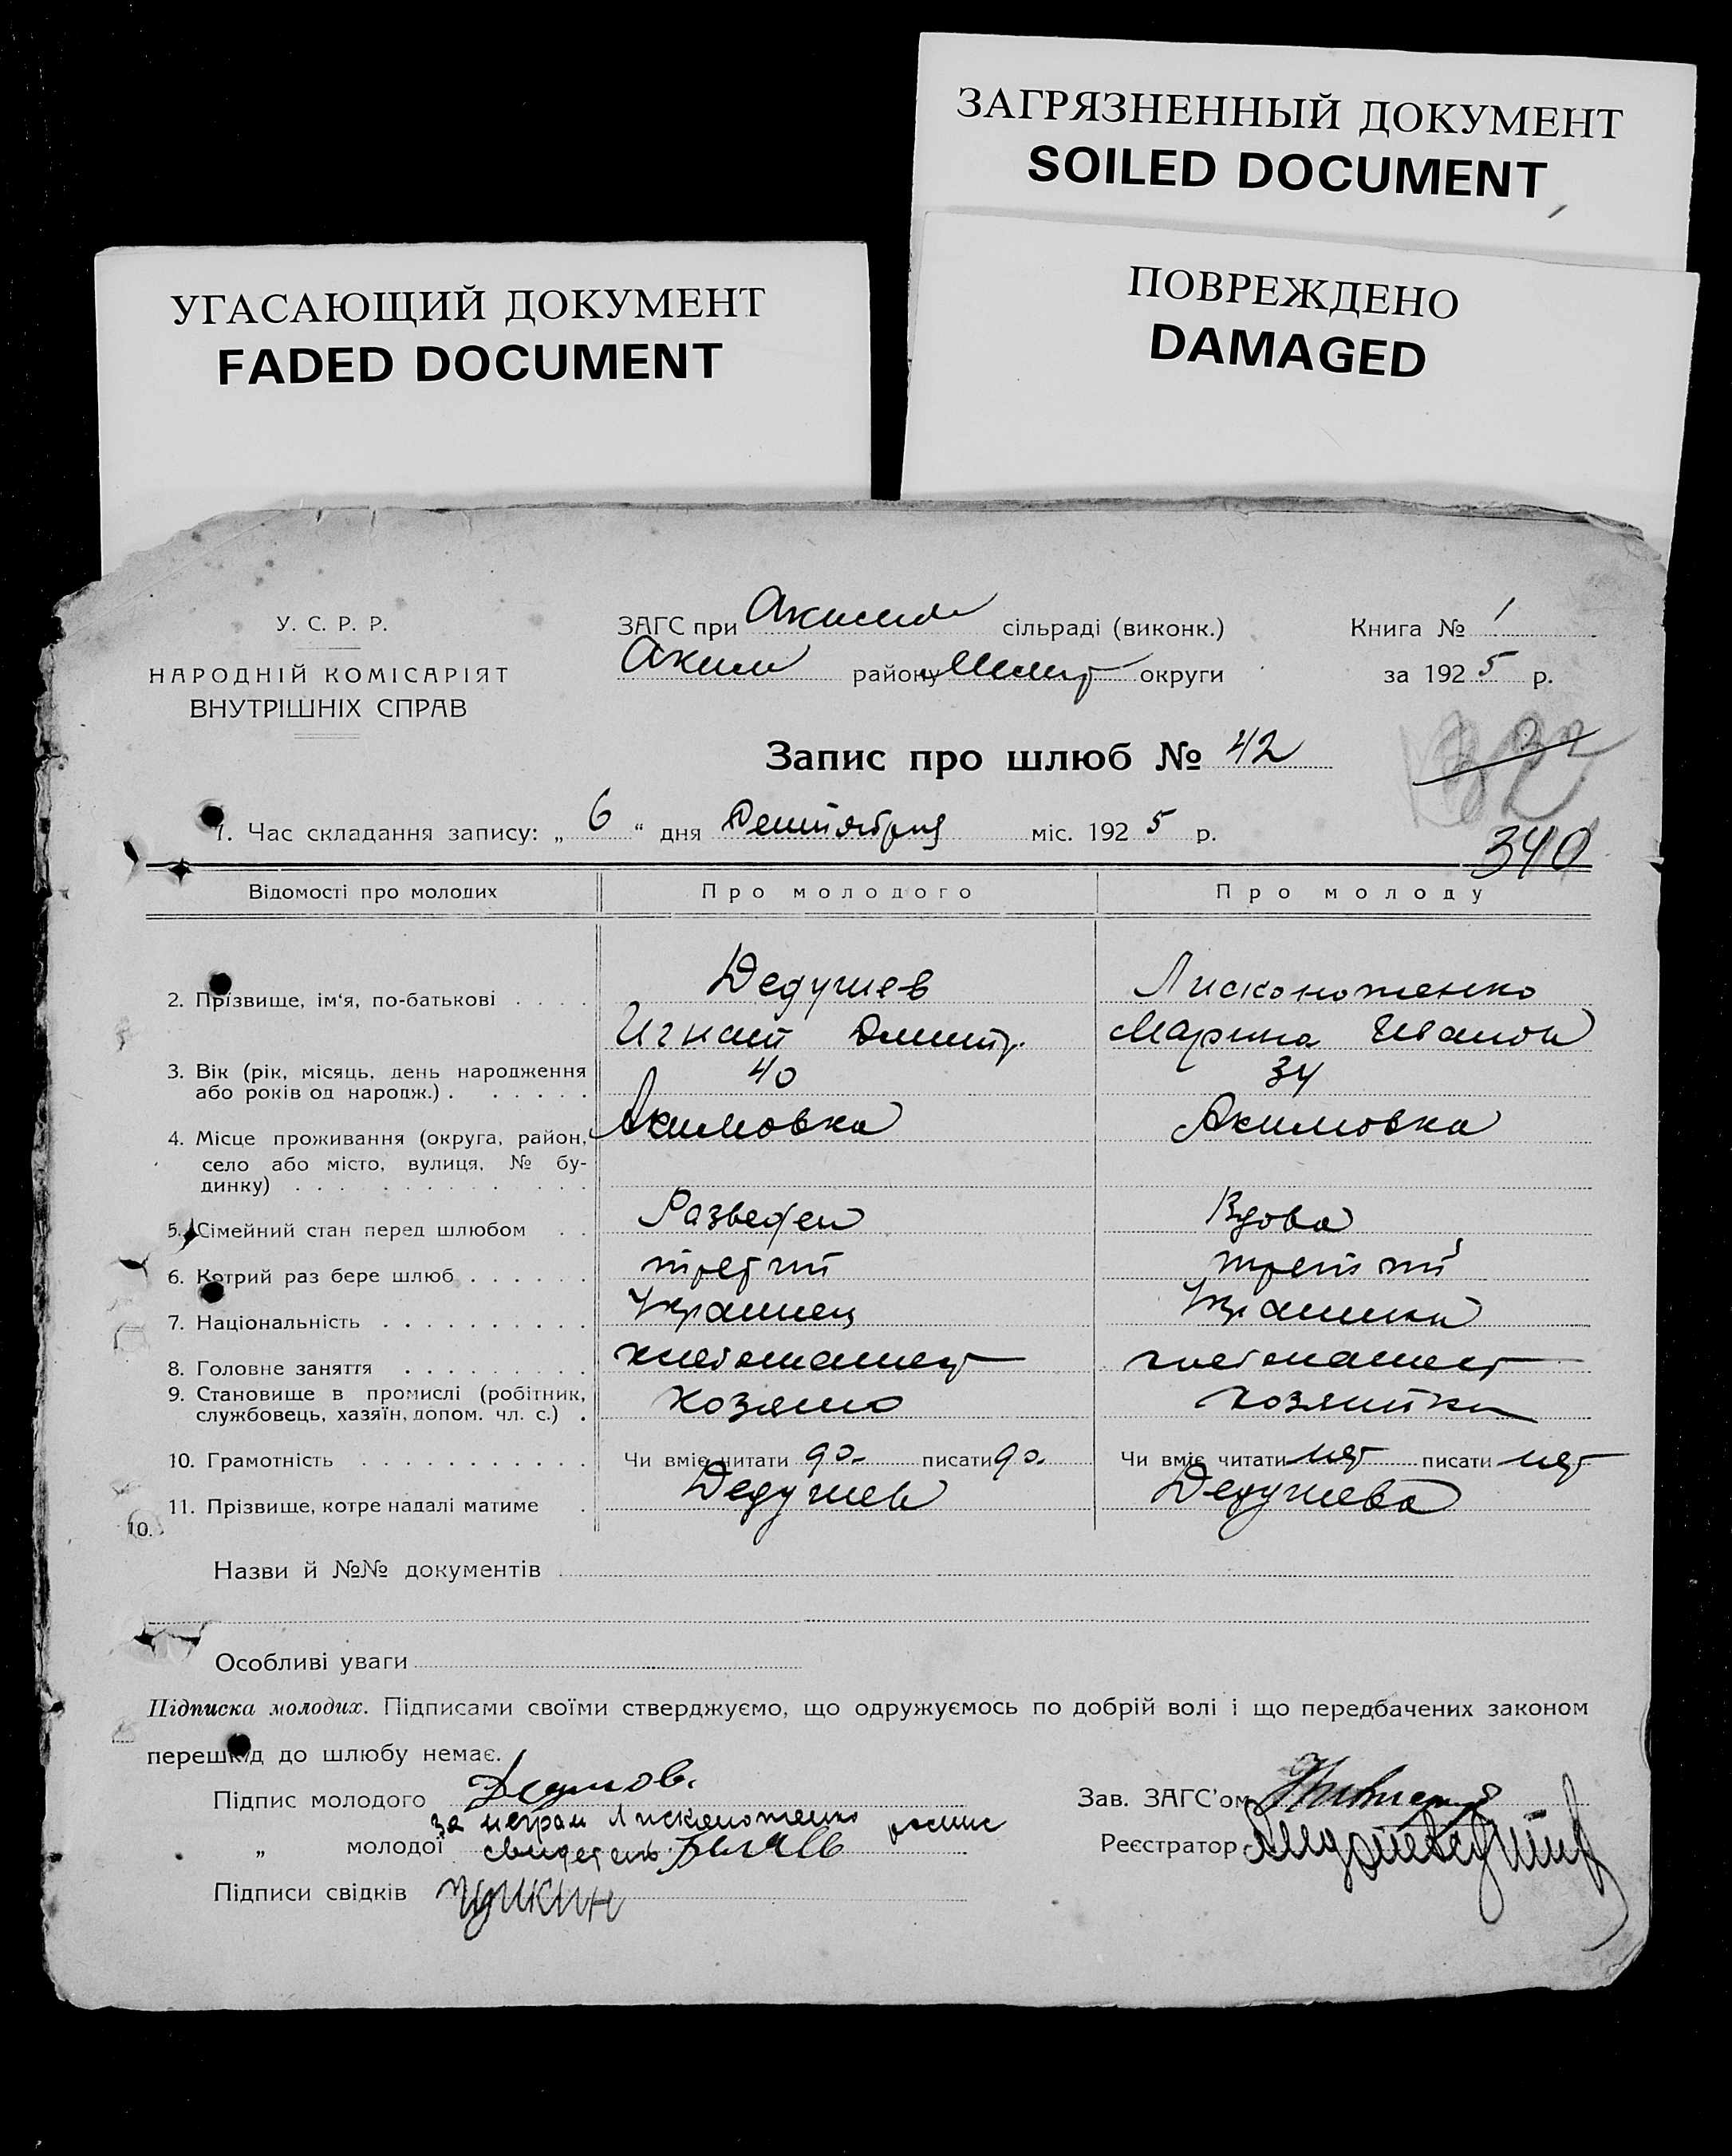 ЗАГРЯЗНЕННЫЙ ДОКУМЕНТ
SOILED DOCUMENT
УГАСАЮЩИЙ ДОКУМЕНТ
FADED DOCUMENT
ПОВРЕЖДЕНО
DAMAGED
У. С. Р. Р.
НАРОДНІЙ КОМІСАРІЯТ
ВНУТРІШНІХ СПРАВ
ЗАГС при Акимов сільраді (виконк.)
Аким району Мелит округи
Книга № 1
за 1925 р.
Запис про шлюб № 42
32
340
1. Час складання запису: „ 6 “ дня Сентября міс. 1925 р.
Відомості про молодих Про молодого Про молоду
2. Прізвище, ім‘я, по-батькові . . . . Дедушев Лисконоженко
Игнат Дмитр. Марина Иванов
3. Вік (рік, місяць, день народження 40 34
або років од народж.) . . . . . .
4. Місце проживання (округа, район, Акимовка Акимовка
село або місто, вулиця, № бу-
динку) . . . . . . . . . . .
5. Сімейний стан перед шлюбом . . Разведен Вдова
6. Котрий раз бере шлюб . . . . . . третий третий
7. Національність . . . . . . . . . . Украинец Украинка
8. Головне заняття . . . . . . . . . хлебопашец хлебопашест
9. Становище в промислі (робітник, хозяин хозяйка
службовець, хазяїн, допом. чл. с.) .
10. Грамотність . . . . . . . . . . . Чи вміє читати да писати да Чи вміє читати нет писати нет
11. Прізвище, котре надалі матиме . Дедушев Дедушева
10.
Назви й №№ документів
Особливі уваги
Підписка молодих. Підписами своїми стверджуємо, що одружуємось по добрій волі і що передбачених законом
перешкод до шлюбу немає.
Підпис молодого
за неграм Лисконоженко роспис
„ молодої свидетель
Підписи свідків
Зав. ЗАГС’ом
Реєстратор